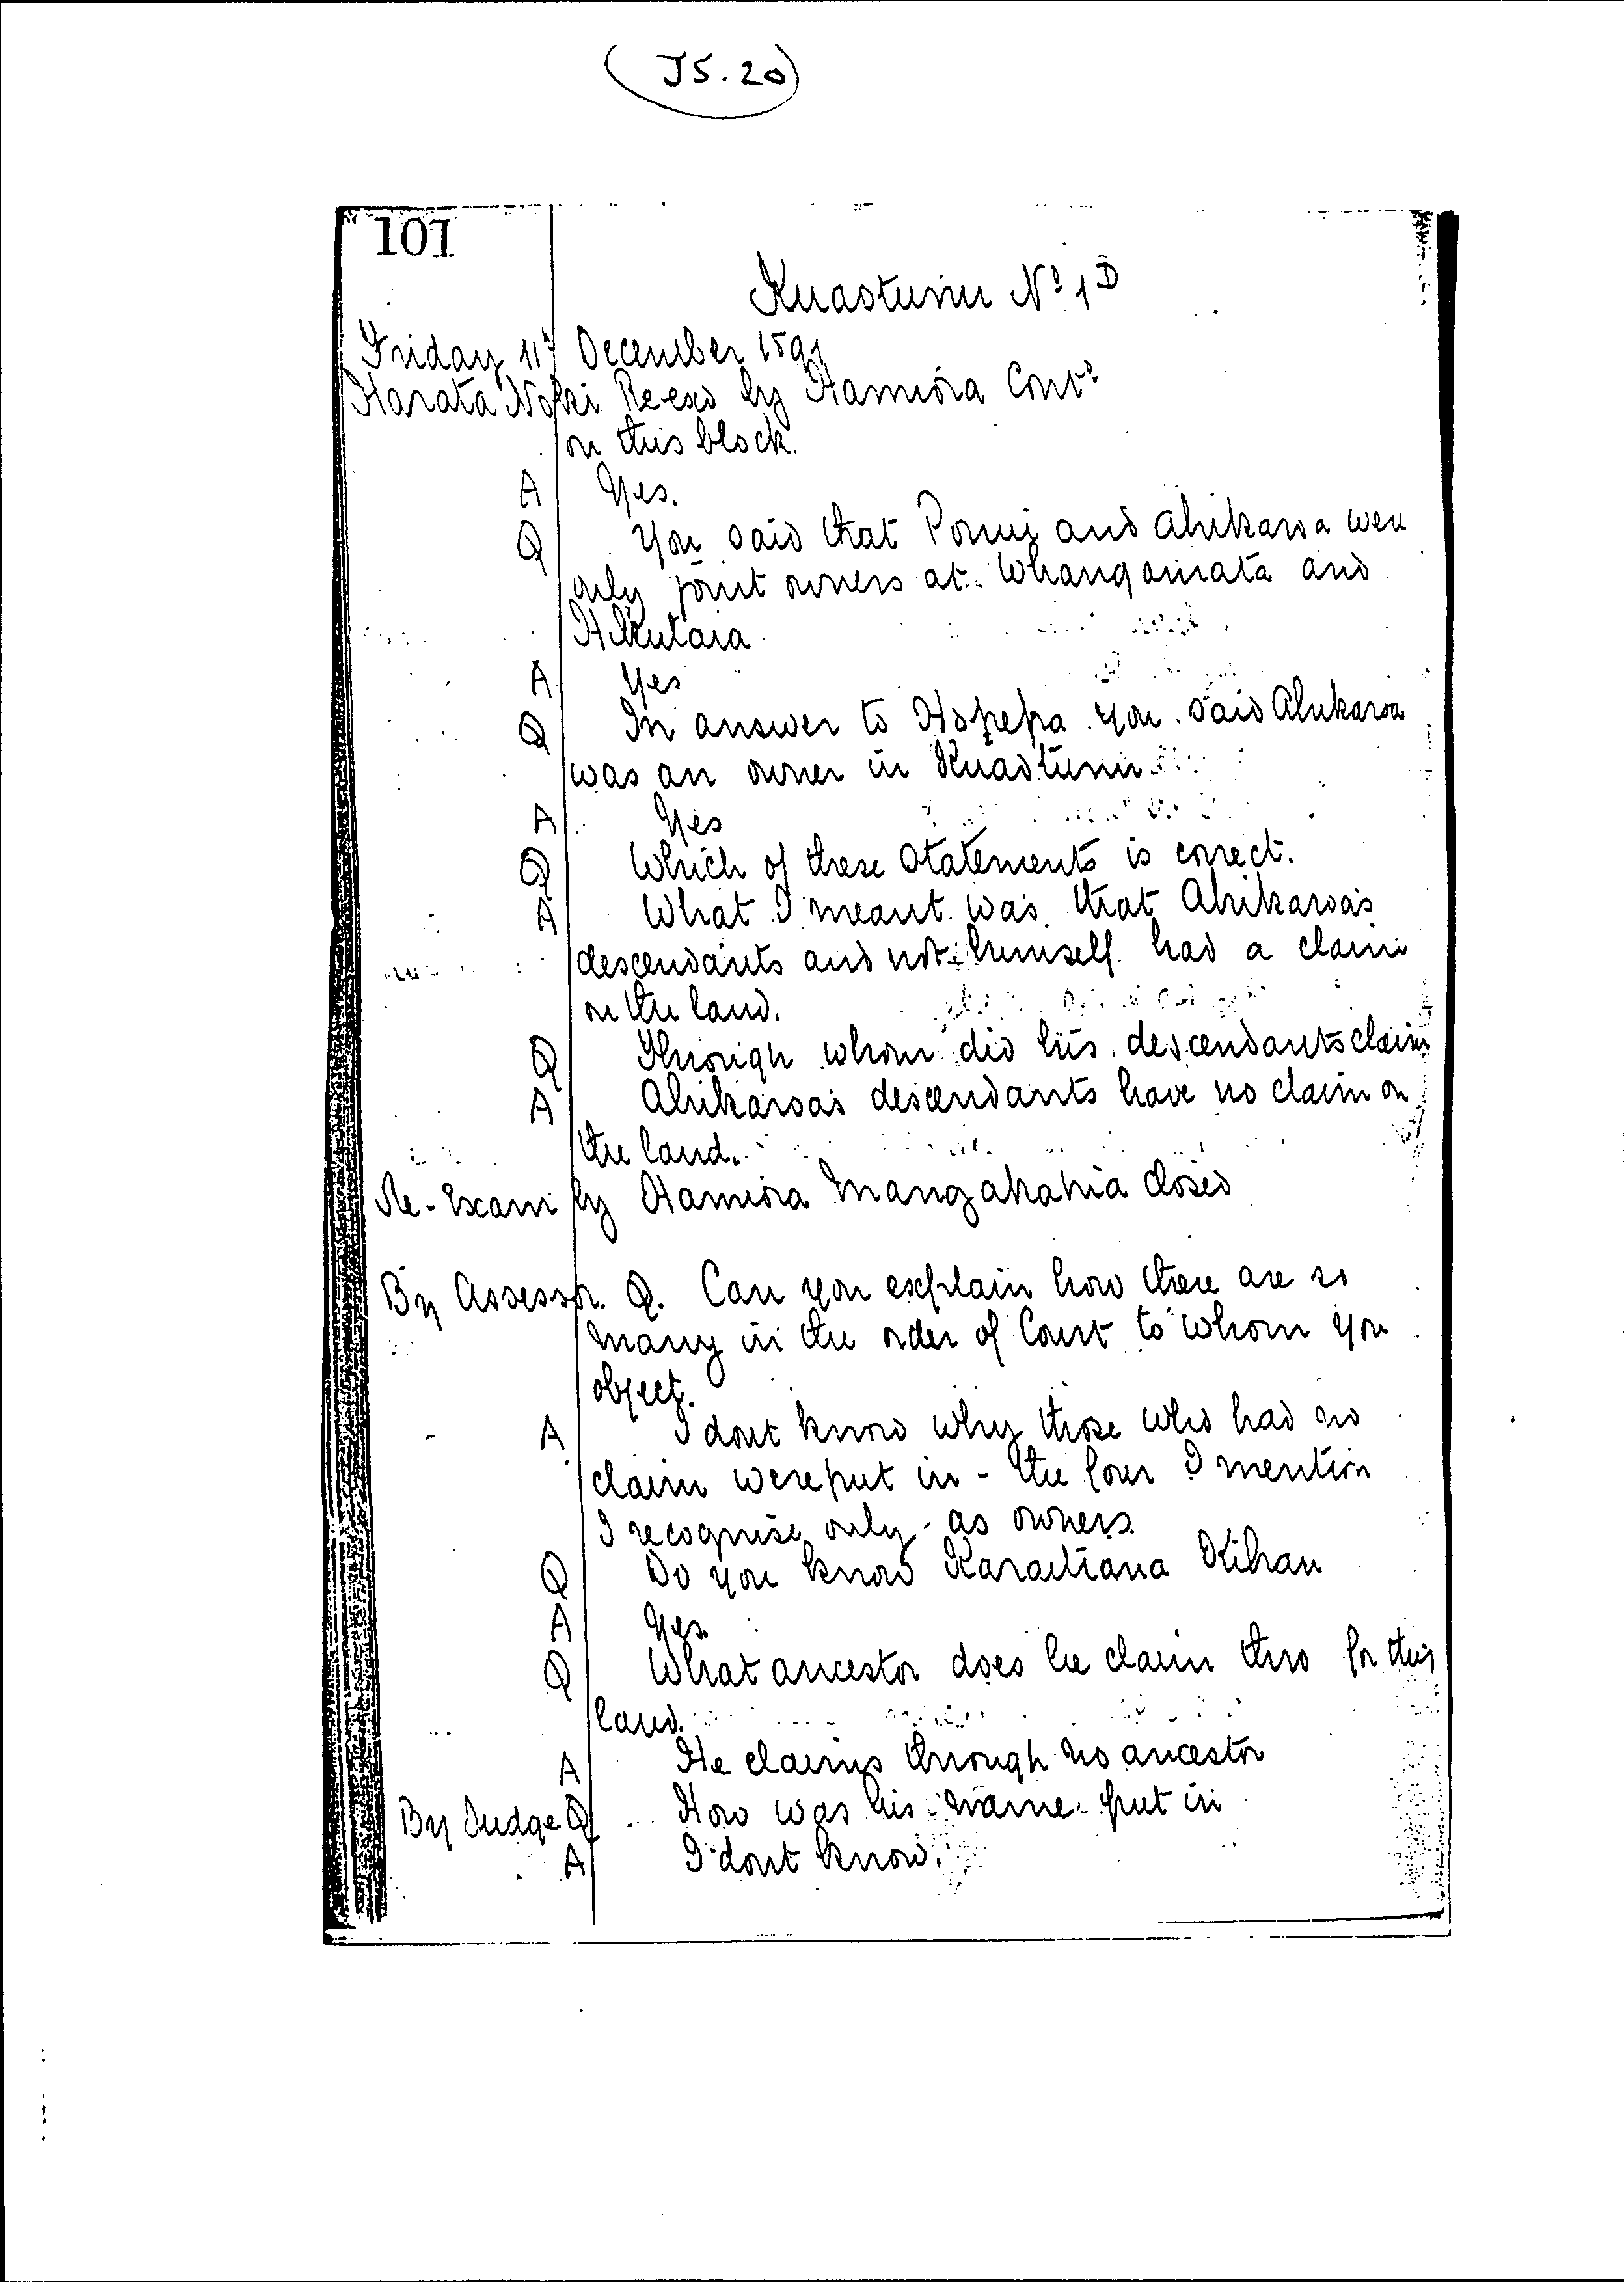 (J5.20)
101
Kuaotunu No 1D
Friday 11th December 1891
Harata Noki Re-exd by Hamiora Contd
on this block.
A Yes.
Q You said that Ponui and Ahikaroa were
only joint owners at Whangamata and
Hikutaia
A Yes
Q In answer to Hopepa you said Ahikaroa
was an owner in Kuaotunu
A Yes
Q Which of these statements is correct.
A What I meant was that Ahikaroa's
descendants and not himself had a claim
on the land.
Q Through whom did his descendants claim
A Ahikaroa's descendants have no claim on
the land.
Re-Exam by Hamiora Mangakahia closed
By Assessor. Q. Can you explain how there are so
many in the order of Court to whom you
object.
A I dont know why those who had no
claim were put in - the four I mention
I recognise only - as owners.
Q Do you know Karaitiana Kihau
A Yes.
Q What ancestor does he claim thro for this
land.
A He claims through no ancestor
By Judge Q How was his name put in
A I dont know.